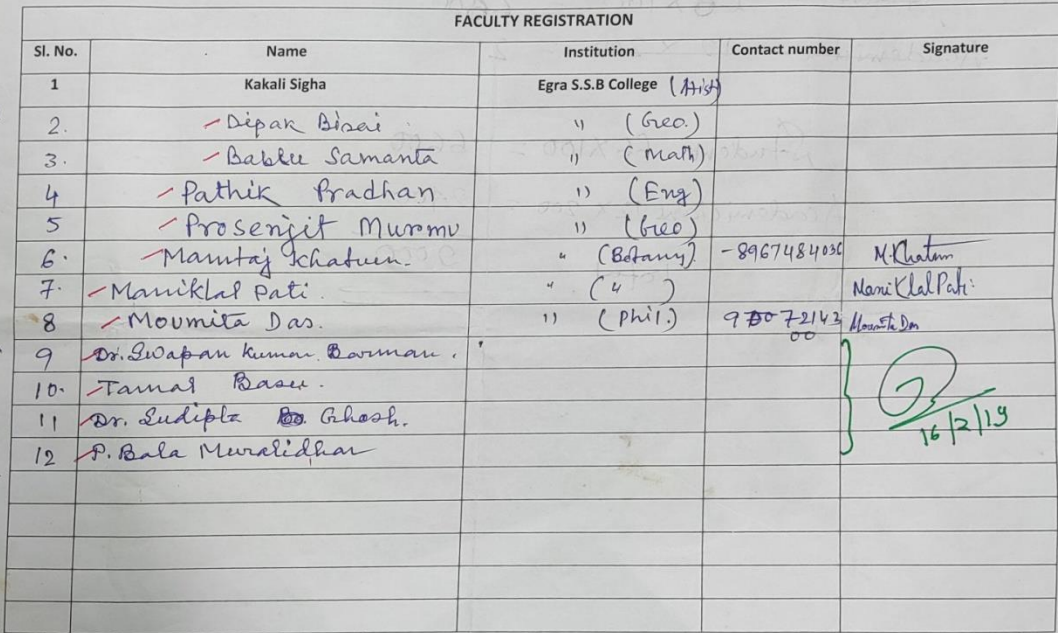 FACULTY REGISTRATION
Sl. No. Name Institution Contact number Signature
1 Kakali Sigha Egra S.S.B College (Hist)
2. Dipak Bisai " (Geo.)
3. Bablu Samanta " (Math)
4 Pathik Pradhan " (Eng)
5 Prosenjit Murmu " (Geo)
6. Mamtaj Khatun. " (Botany) - 8967484036 M. Khatun
7. Maniklal Pati. " ( " ) Maniklal Pati.
8 Moumita Das. " (Phil.) Moumita Das
9 Dr. Swapan Kumar Barman.
10. Tamal Basu.
11 Dr. Sudipta Ghosh.
12 P. Bala Muralidhar
16/2/19